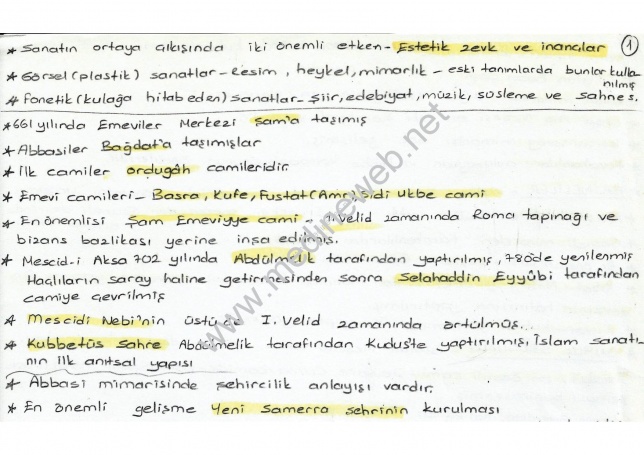 * Sanatın ortaya çıkışında iki önemli etken - Estetik zevk ve inançlar ①
* Görsel (plastik) sanatlar - Resim, heykel, mimarlık - eski tanımlarda bunlar kulla
nılmış
* Fonetik (kulağa hitab eden) sanatlar - şiir, edebiyat, müzik, süsleme ve sahnes.
* 661 yılında Emeviler Merkezi Şam'a taşımış
* Abbasiler Bağdat'a taşımışlar
* İlk camiler ordugâh camileridir.
* Emevi camileri - Basra, Kufe, Fustat (Amr) Sidi Ukbe cami
* En önemlisi Şam Emeviyye cami - I. Velid zamanında Roma tapınağı ve
bizans bazlikası yerine inşa edilmiş.
* Mescid-i Aksa 702 yılında Abdülmelik tarafından yaptırılmış, 780'de yenilenmiş
Haçlıların saray haline getirmesinden sonra Selahaddin Eyyûbi tarafından
camiye çevrilmiş
* Mescidi Nebi'nin üstü de I. Velid zamanında örtülmüş...
* Kubbetüs Sahre Abdülmelik tarafından Kudüs'te yaptırılmış, İslam sanatı-
nın ilk anıtsal yapısı
* Abbasi mimarisinde şehircilik anlayışı vardır.
* En önemli gelişme Yeni Samerra şehrinin kurulması
www.medineweb.net